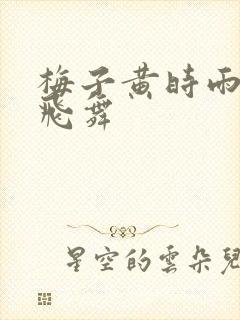 梅子黄時雨
飛舞
星空的雲朵兒